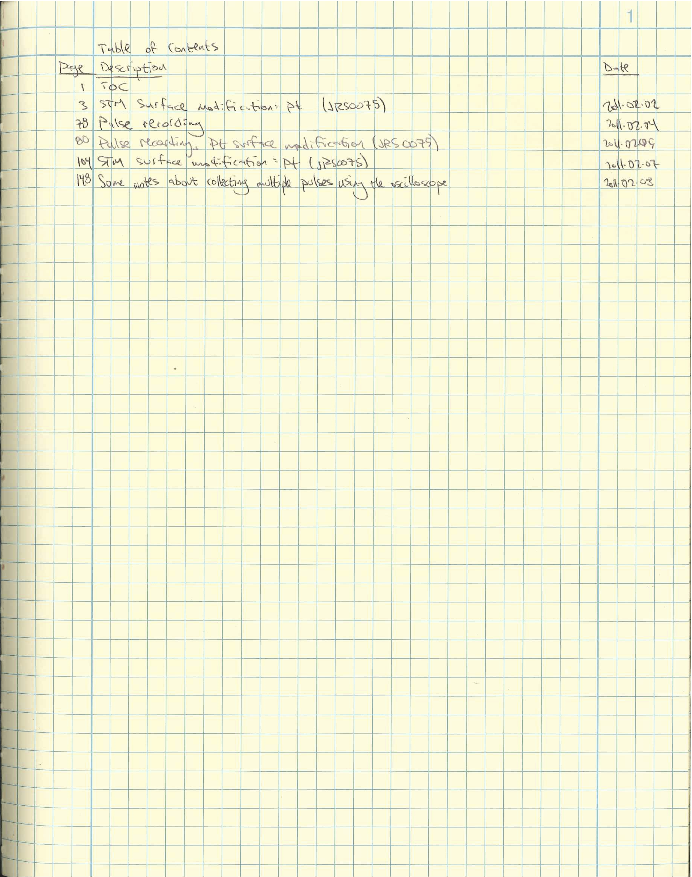 1
Table of Contents
Page Description Date
1 TOC
3 STM Surface modification: Pt (JRS0075) 2011.02.02
79 Pulse recording 2011.02.04
80 Pulse recording, Pt surface modification (JRS0075) 2011.02.05
104 STM surface modification: Pt (JRS0075) 2011.02.07
148 Some notes about collecting multiple pulses using the oscilloscope 2011.02.08